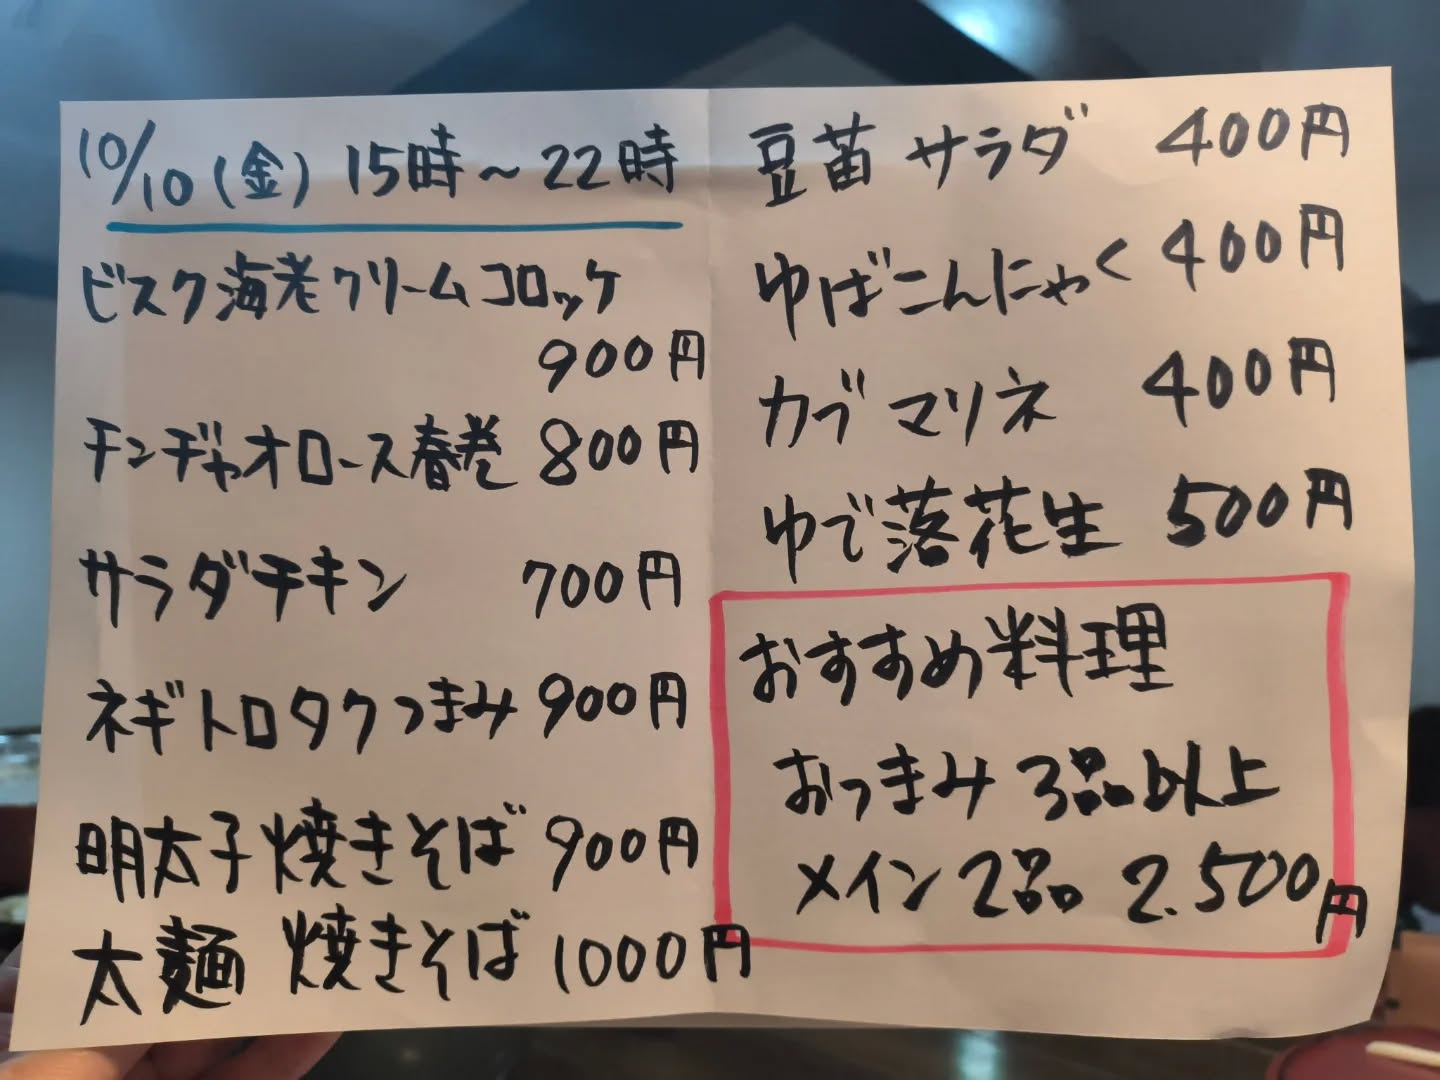 10/10(金) 15時～22時
ビスク海老クリームコロッケ
900円
チンヂャオロース春巻 800円
サラダチキン 700円
ネギトロタクつまみ 900円
明太子焼きそば 900円
太麺 焼きそば 1000円
豆苗 サラダ 400円
ゆばこんにゃく 400円
カブ マリネ 400円
ゆで落花生 500円
おすすめ料理
おつまみ 3品以上
メイン2品 2.500円